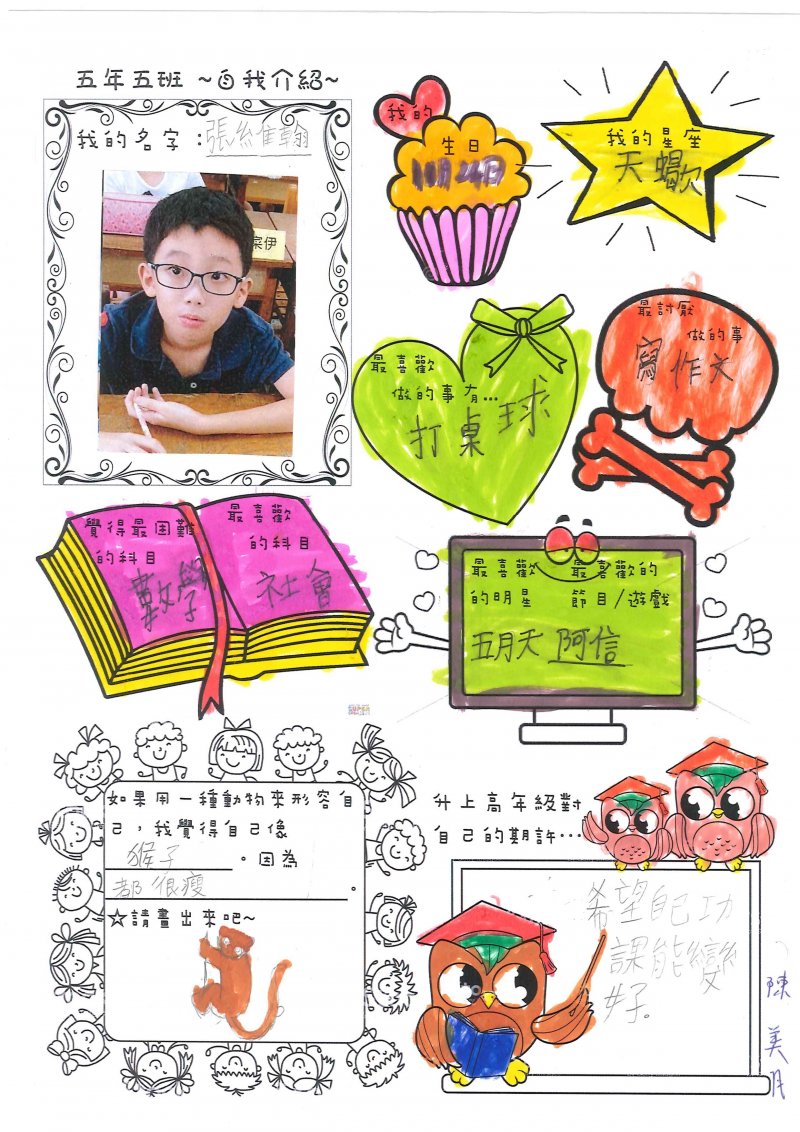 五年五班 ~自我介紹~
我的名字：張維翰
宷伊
我的
生日
11月24日
我的星座
天蠍
最喜歡
做的事有...
打桌球
最討厭
做的事
寫作文
覺得最困難
的科目
數學
最喜歡
的科目
社會
最喜歡
的明星
五月天 阿信
最喜歡的
節目/遊戲
如果用一種動物來形容自
己，我覺得自己像
猴子。因為
都很瘦。
☆請畫出來吧~
升上高年級對
自己的期許…
希望自己功
課能變
好。
陳美月